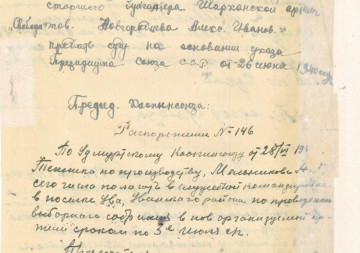 старшего бухгалтера Шарканской артели
тов. Новгородцева Алекс. Иванов.
предать суду на основании указа
Президиума Союза ССР от 26 июня 1940
Предид. Коопинсоюза:
Распоряжение № 146
По Удмуртскому Коопинсоюзу от 28/VI
Техника по производству, Мельникова
сего числа полагать в служебной командировке
в поселке Ува, Увинского района по проведению
выборного собрания в нов организуемой ар-
тели сроком по 3е июля с/г.